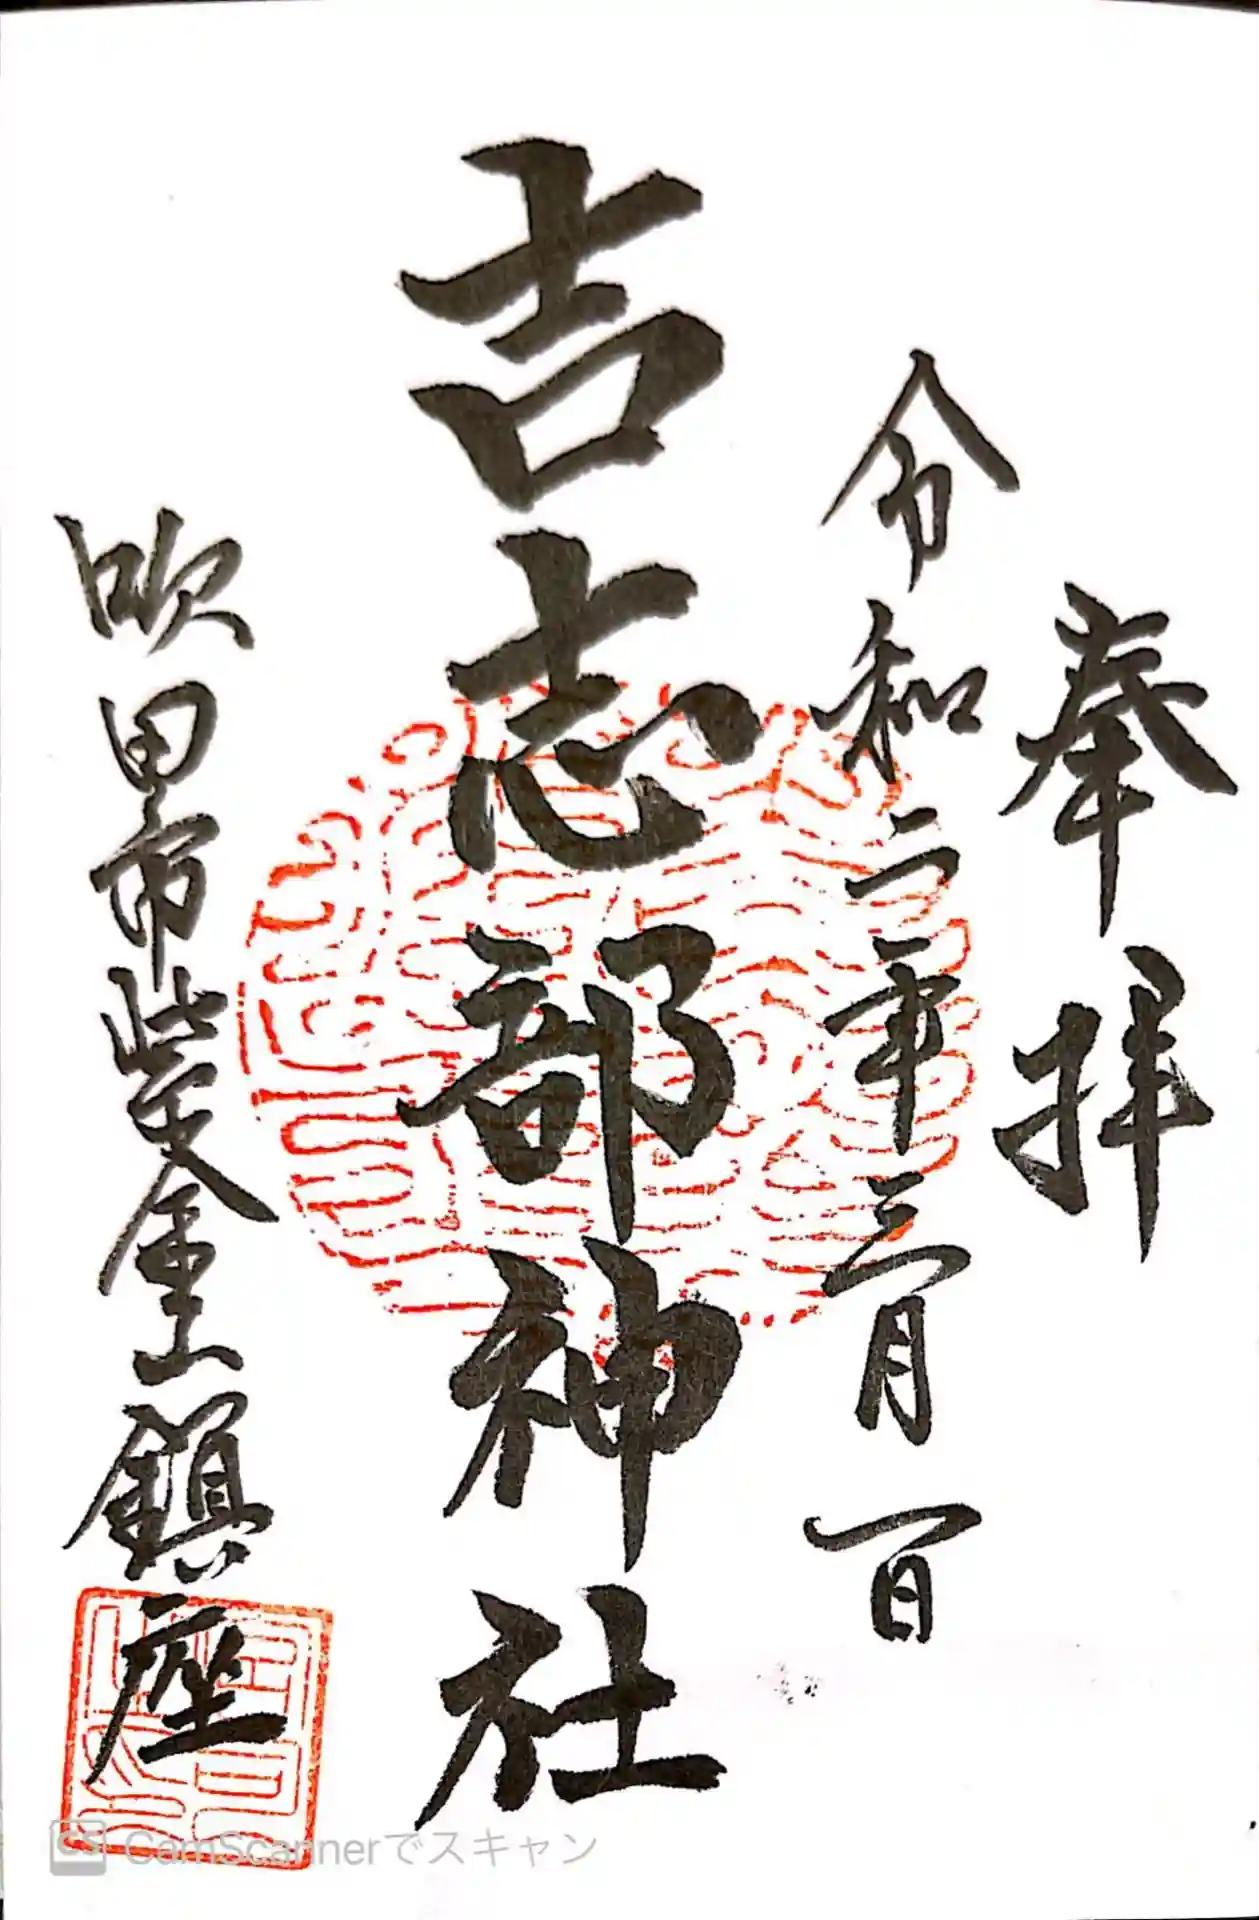 奉拝
令和二年三月一日
吉志部神社
吹田市紫金山鎮座
CS CamScannerでスキャン